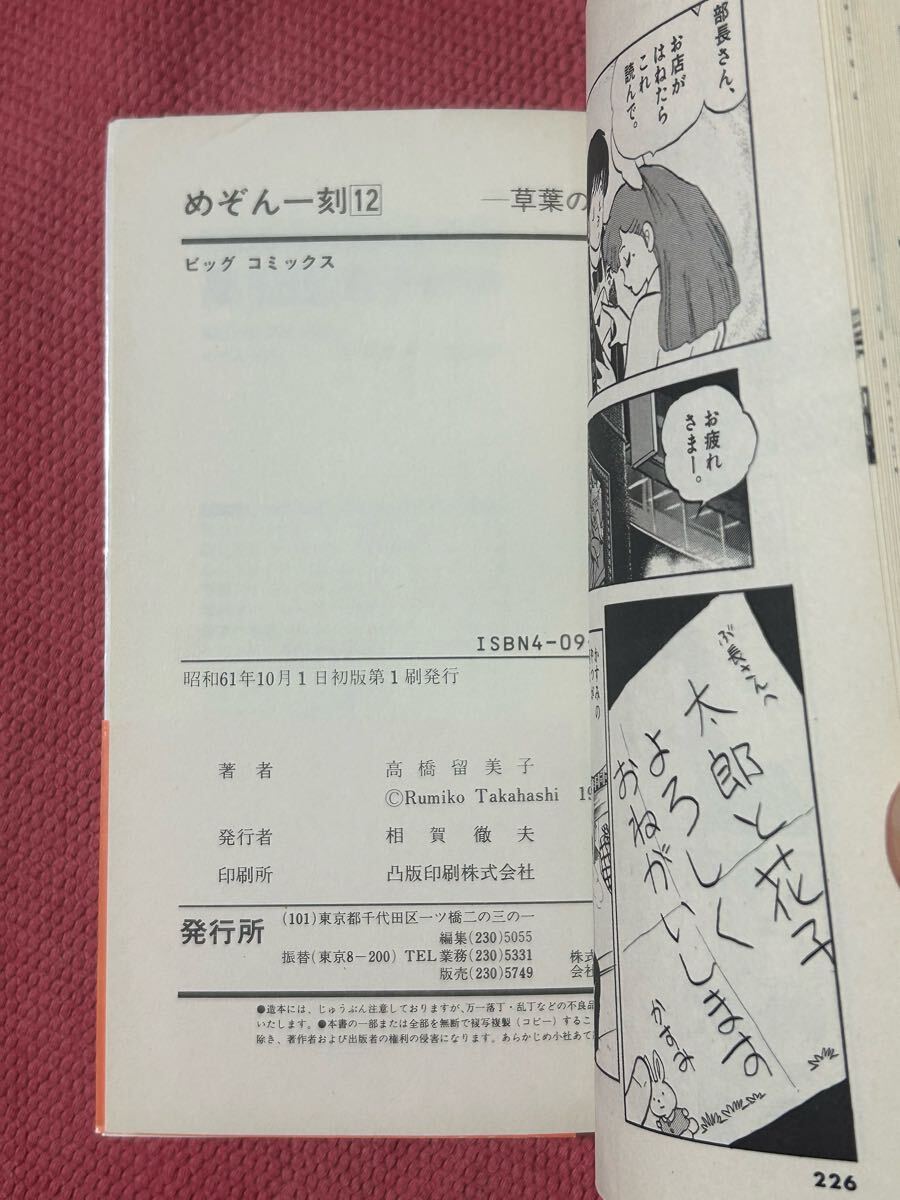 めぞん一刻12
―草葉の
ビッグ コミックス
ISBN4-09
昭和61年10月1日初版第1刷発行
著者 高橋留美子
©Rumiko Takahashi 19
発行者 相賀徹夫
印刷所 凸版印刷株式会社
発行所
(101)東京都千代田区一ツ橋二の三の一
編集(230)5055
振替(東京8-200) TEL業務(230)5331
販売(230)5749
株式
会社
●造本には、じゅうぶん注意しておりますが、万一落丁・乱丁などの不良品
いたします。●本書の一部または全部を無断で複写複製(コピー)するこ
除き、著作者および出版者の権利の侵害になります。あらかじめ小社あて
部長さん、
お店が
はねたら
これ
読んで。
お疲れ
さまー。
かすみの
ぶ長さんへ
太郎と花子
よろしく
おねがいします
かすみ
226